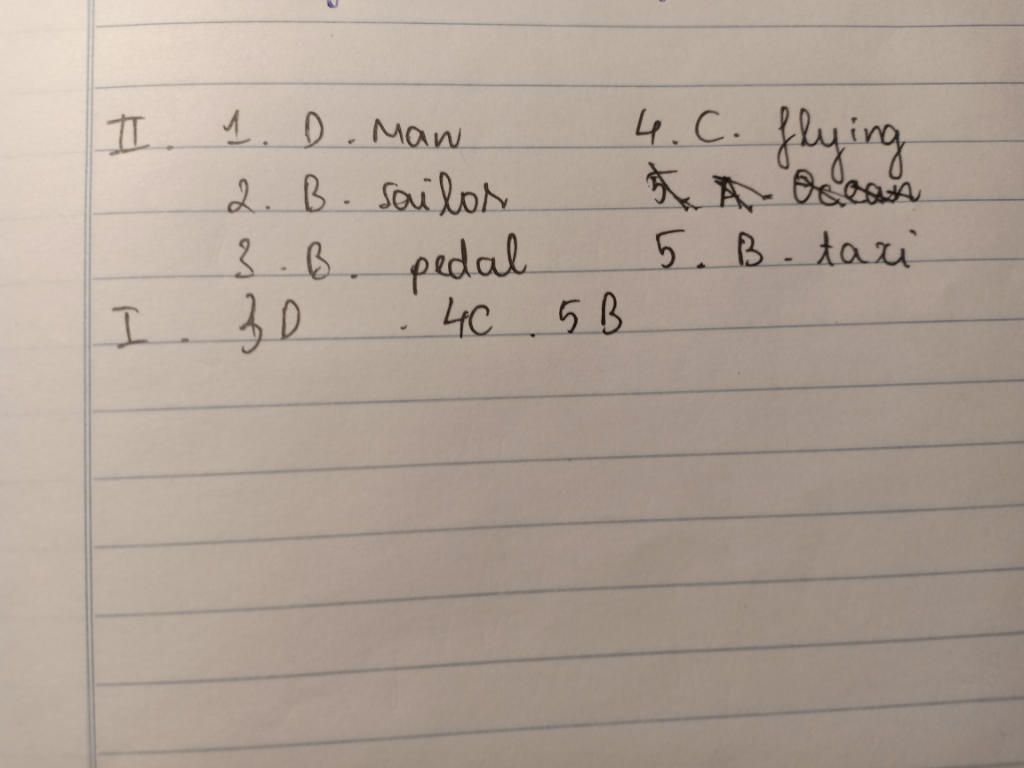 II. 1. D. Man 4. C. flying
2. B. sailor 5. A. Ocean
3. B. pedal 5. B. taxi
I. 3D. 4C. 5B